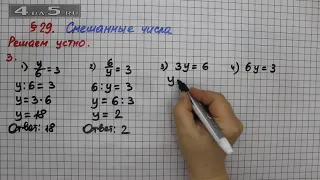 4 ДА 5.RU
§ 29. Смешанные числа
Решаем устно.
3.
1) y/6 = 3
y : 6 = 3
y = 3 · 6
y = 18
Ответ: 18
2) 6/y = 3
6 : y = 3
y = 6 : 3
y = 2
Ответ: 2
3) 3y = 6
y
4) 6y = 3